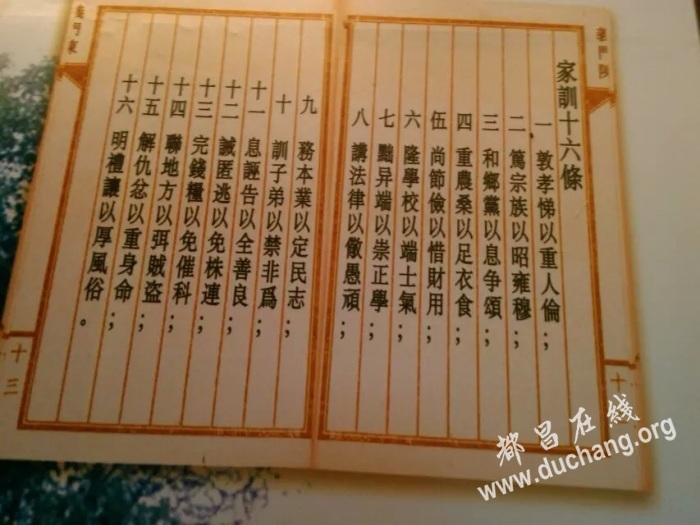 義門陳
家訓十六條
一 敦孝悌以重人倫；
二 篤宗族以昭雍穆；
三 和鄉黨以息争頌；
四 重農桑以足衣食；
伍 尚節儉以惜財用；
六 隆學校以端士氣；
七 黜异端以崇正學；
八 講法律以儆愚頑；
九 務本業以定民志；
十 訓子弟以禁非爲；
十一 息誣告以全善良；
十二 誡匿逃以免株連；
十三 完錢糧以免催科；
十四 聯地方以弭賊盗；
十五 解仇忿以重身命；
十六 明禮讓以厚風俗。
十三
都昌在线
www.duchang.org